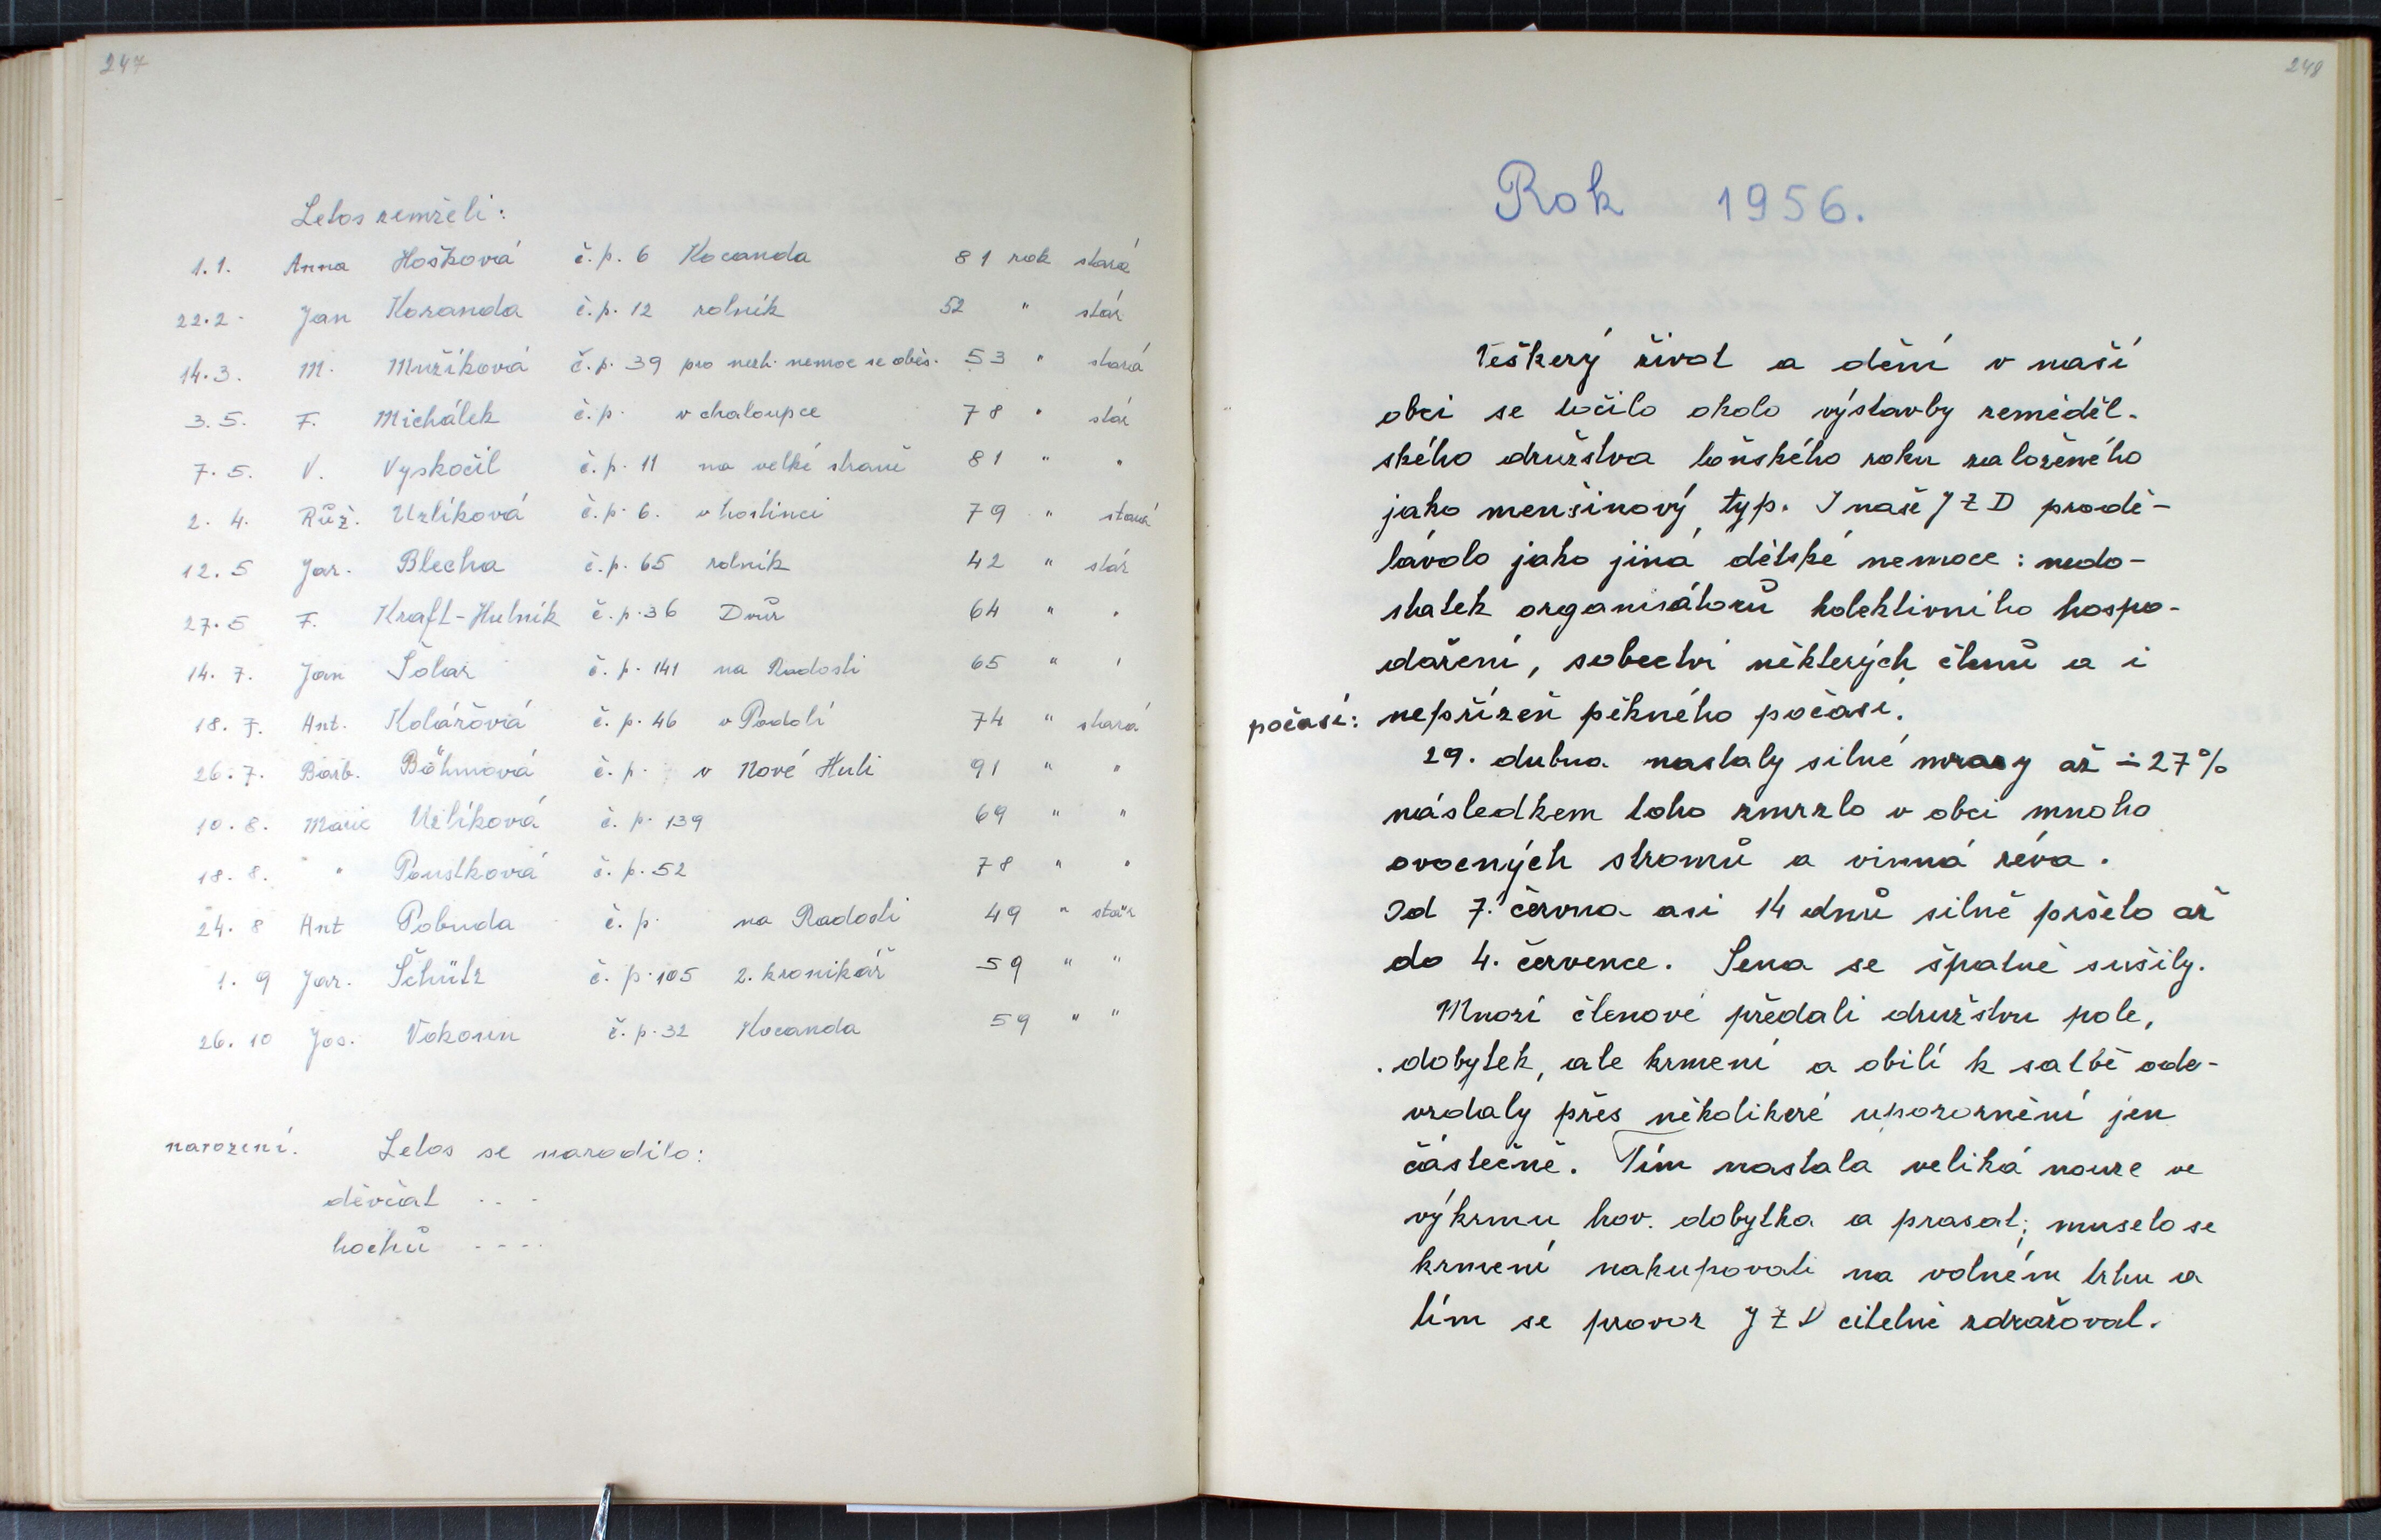 247
Letos zemřeli:
1.1. Anna Hošková č.p. 6 Kocanda 81 rok stará
22.2. Jan Koranda č.p. 12 rolník 52 " stár
14.3. M. Mužíková č.p. 39 pro nezh. nemoc se oběs. 53 " stará
3.5. F. Michálek č.p. v chaloupce 78 " stár
7.5. V. Vyskočil č.p. 11 na velké straně 81 " "
2.4. Růž. Uzlíková č.p. 6. v hostinci 79 " stará
12.5 Jar. Blecha č.p. 65 rolník 42 " stár
27.5 F. Kraft-Hutník č.p. 36 Dvůr 64 " "
14.7. Jan Šolar č.p. 141 na Radosti 65 " "
18.7. Ant. Kolářová č.p. 46 v Podolí 74 " stará
26.7. Barb. Böhmová č.p. v Nové Huti 91 " "
10.8. Marie Uzlíková č.p. 139 69 " "
18.8. " Poustková č.p. 52 78 " "
24.8 Ant Pobuda č.p. na Radosti 49 " stár
1.9 Jar. Schütz č.p. 105 2. kronikář 59 " "
26.10 Jos. Vokoun č.p. 32 Kocanda 59 " "
narození. Letos se narodilo:
děvčat ...
hochů ....
248
Rok 1956.
Veškerý život a dění v naší
obci se točilo okolo výstavby zeměděl-
ského družstva loňského roku založeného
jako menšinový typ. I naše JZD prodě-
lávalo jako jiná dětské nemoce: nedo-
statek organisátorů kolektivního hospo-
daření, sobectví některých členů a i
počasí: nepřízeň pěkného počasí.
29. dubna nastaly silné mrazy až ÷27%
následkem toho zmrzlo v obci mnoho
ovocných stromů a vinná réva.
Od 7. června asi 14 dnů silně pršelo až
do 4. července. Sena se špatně sušily.
Mnozí členové předali družstvu pole,
dobytek, ale krmení a obilí k satbě ode-
vzdaly přes několikeré upozornění jen
částečně. Tím nastala veliká nouze ve
výkrmu hov. dobytka a prasat; muselo se
krmení nakupovati na volném trhu a
tím se provoz JZD citelně zdražoval.